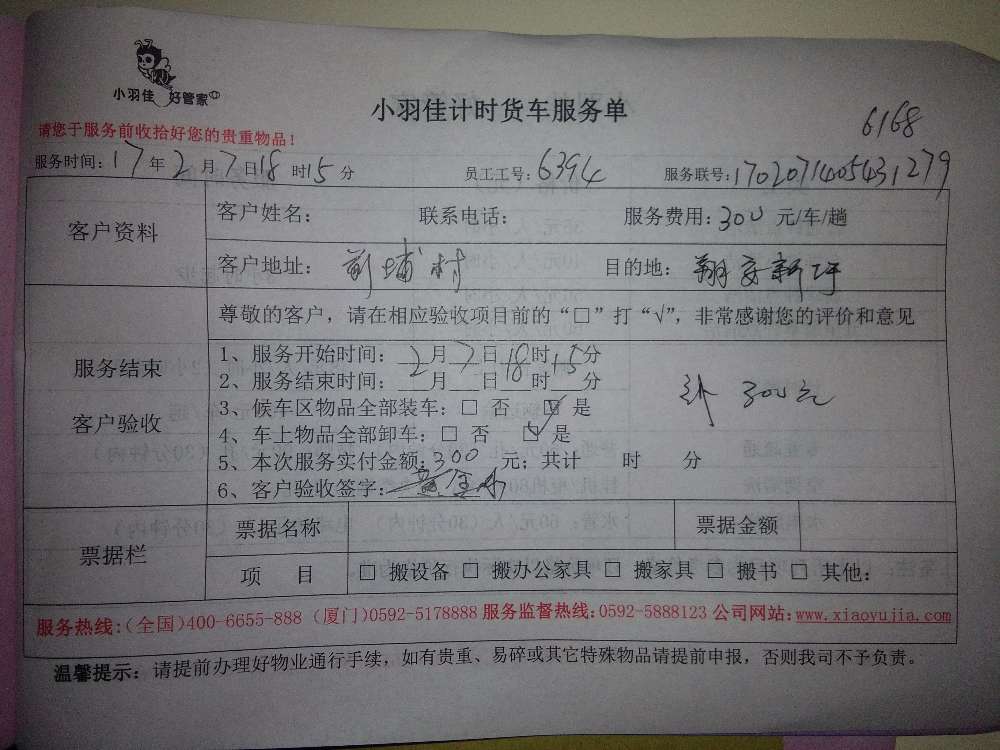 小羽佳 好管家
小羽佳计时货车服务单
6168
请您于服务前收拾好您的贵重物品！
服务时间：17年2月7日18时15分 员工工号：6394 服务联号：1702071405431279
客户资料
客户姓名： 联系电话： 服务费用：300元/车/趟
客户地址：前埔村 目的地：翔安新圩
服务结束
客户验收
尊敬的客户，请在相应验收项目前的“□”打“√”，非常感谢您的评价和意见
1、服务开始时间：2月7日18时15分
2、服务结束时间：___月___日18时___分
3、候车区物品全部装车：□ 否 ☑ 是
4、车上物品全部卸车：□ 否 ☑ 是
5、本次服务实付金额：300 元；共计 时 分
6、客户验收签字：
300元
票据栏
票据名称 票据金额
项 目 □ 搬设备 □ 搬办公家具 □ 搬家具 □ 搬书 □ 其他：
服务热线：(全国)400-6655-888 (厦门)0592-5178888 服务监督热线：0592-5888123 公司网站：www.xiaoyujia.com
温馨提示：请提前办理好物业通行手续，如有贵重、易碎或其它特殊物品请提前申报，否则我司不予负责。